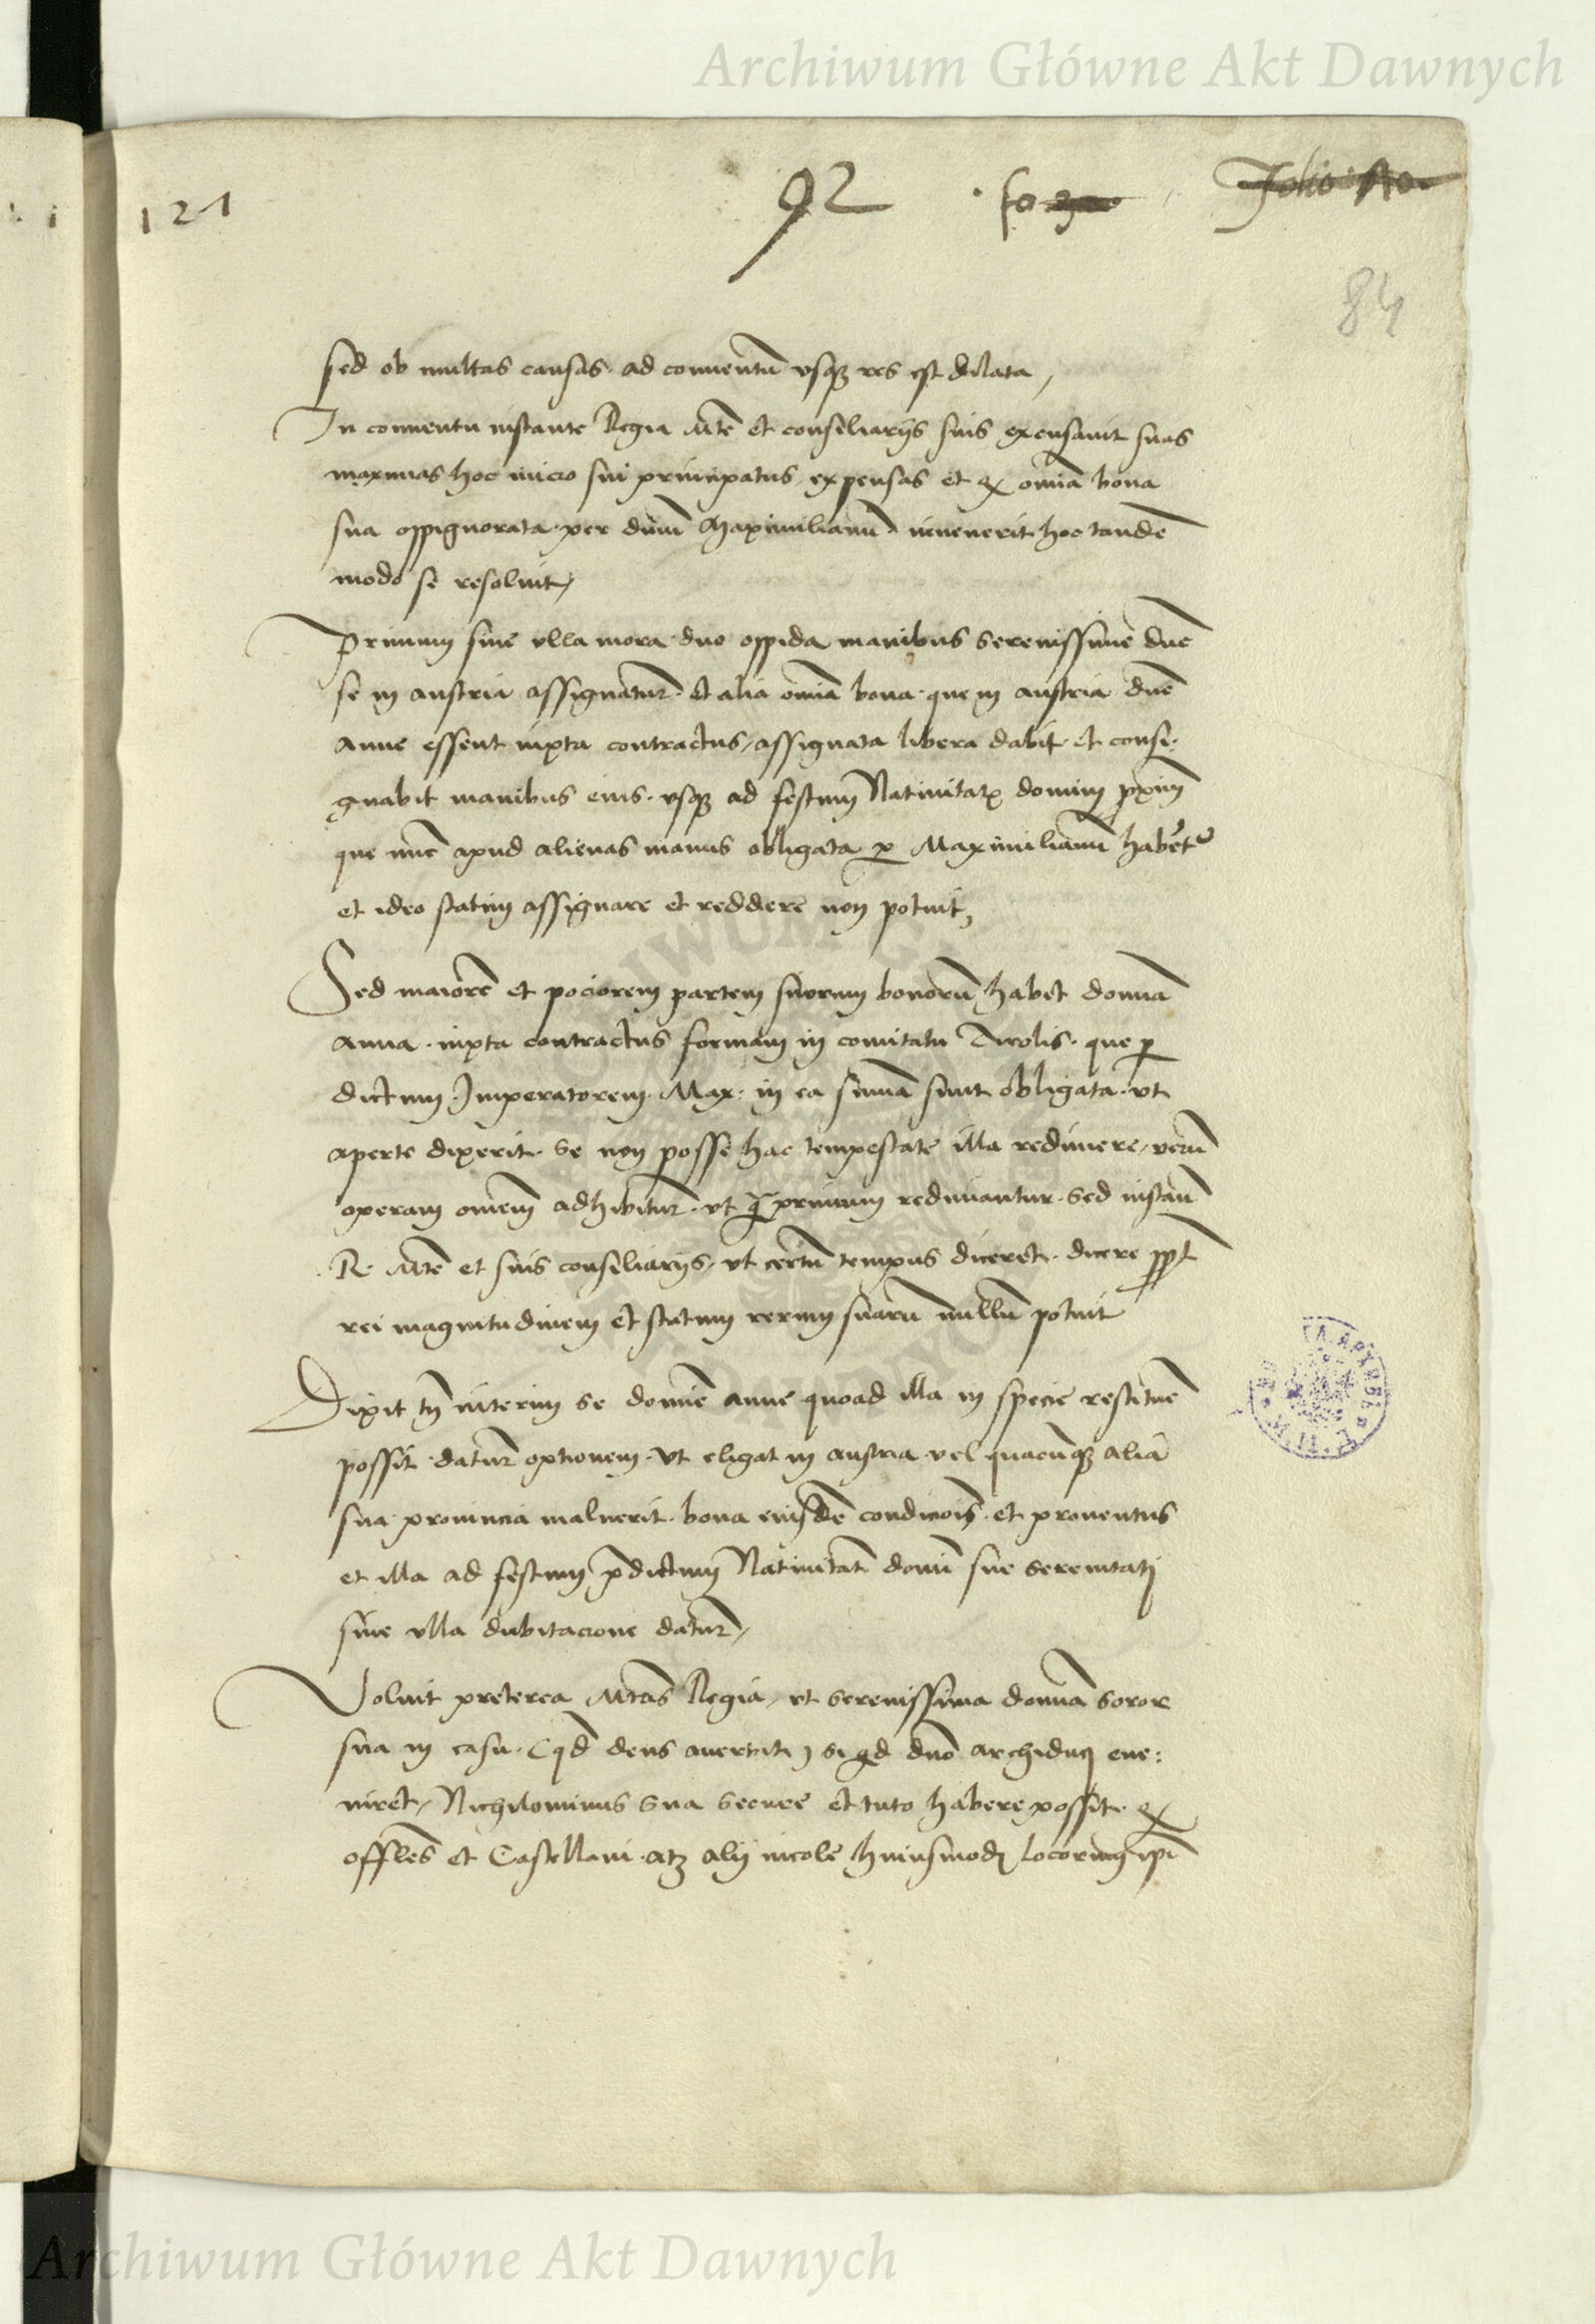 Archiwum Główne Akt Dawnych
121
92
fo
Folio
84
sed ob multas causas ad conuentũ vsqꝫ res est dilata,
In conuentu instante Regia Mte͂ et consiliarijs suis excusauit suas
maximas hoc inicio sui principatus expensas et ꝙ omĩa bona
sua oppignorata per dnũm Maximilianũ inuenerit hoc tande͂
modo se resoluit,
Primum sine vlla mora duo oppida manibus serenissime dne͂
se in austria assignatur͂ et alia omĩa bona que in austria dne͂
Anne essent iuxta contractus, assignata libera dabit et consi:
gnabit manibus eius vsqꝫ ad festum Natiuitatꝭ domini ꝓxim͂
que nu͂c apud alienas manus obligata ꝑ Maximilianũ habe͂tʳ
et ideo statim assignare et reddere non potuit,
Sed maiore͂ et pociorem partem suorum bonorũ habet domĩa
Anna iuxta contractus formam in comitatu Tirolis que ꝑ
dictum Imperatorem Max: in ea summa͂ sunt obligata vt
aperte dixerit se non posse hac tempestate illa redimere, verũ
operam omnem͂ adhibitur͂ vt ꝙ primum redimantur Sed instan͂
R. Mte͂ et suis consiliarijs, vt certũ tempus diceret dicere ꝓpt͂
rei magnitudinem et statum rerum suarũ nullũ potuit
Dixit tn͂ interim se domĩe Anne quoad illa in specie restitue͂
possit datur͂ optionem vt eligat in austria vel quacu͂qꝫ alia
sua prouincia maluerit bona eiusde͂ condicio͂is et prouentus
et illa ad festum p͂dictum Natiuitat͂ domĩ sue serenitatj
sine vlla dubitacione datur͂,
Voluit preterea Mtas͂ Regia, vt serenissima domĩa soror
sua in casu (qd͂ deus auertit) si qd dno͂ archiducj eue:
niret, Nichilominus sua secure et tuto habere possit ꝙ
offles͂ et Castellani atqꝫ alij incole huiusmodj locorum ipĩ
Archiwum Główne Akt Dawnych